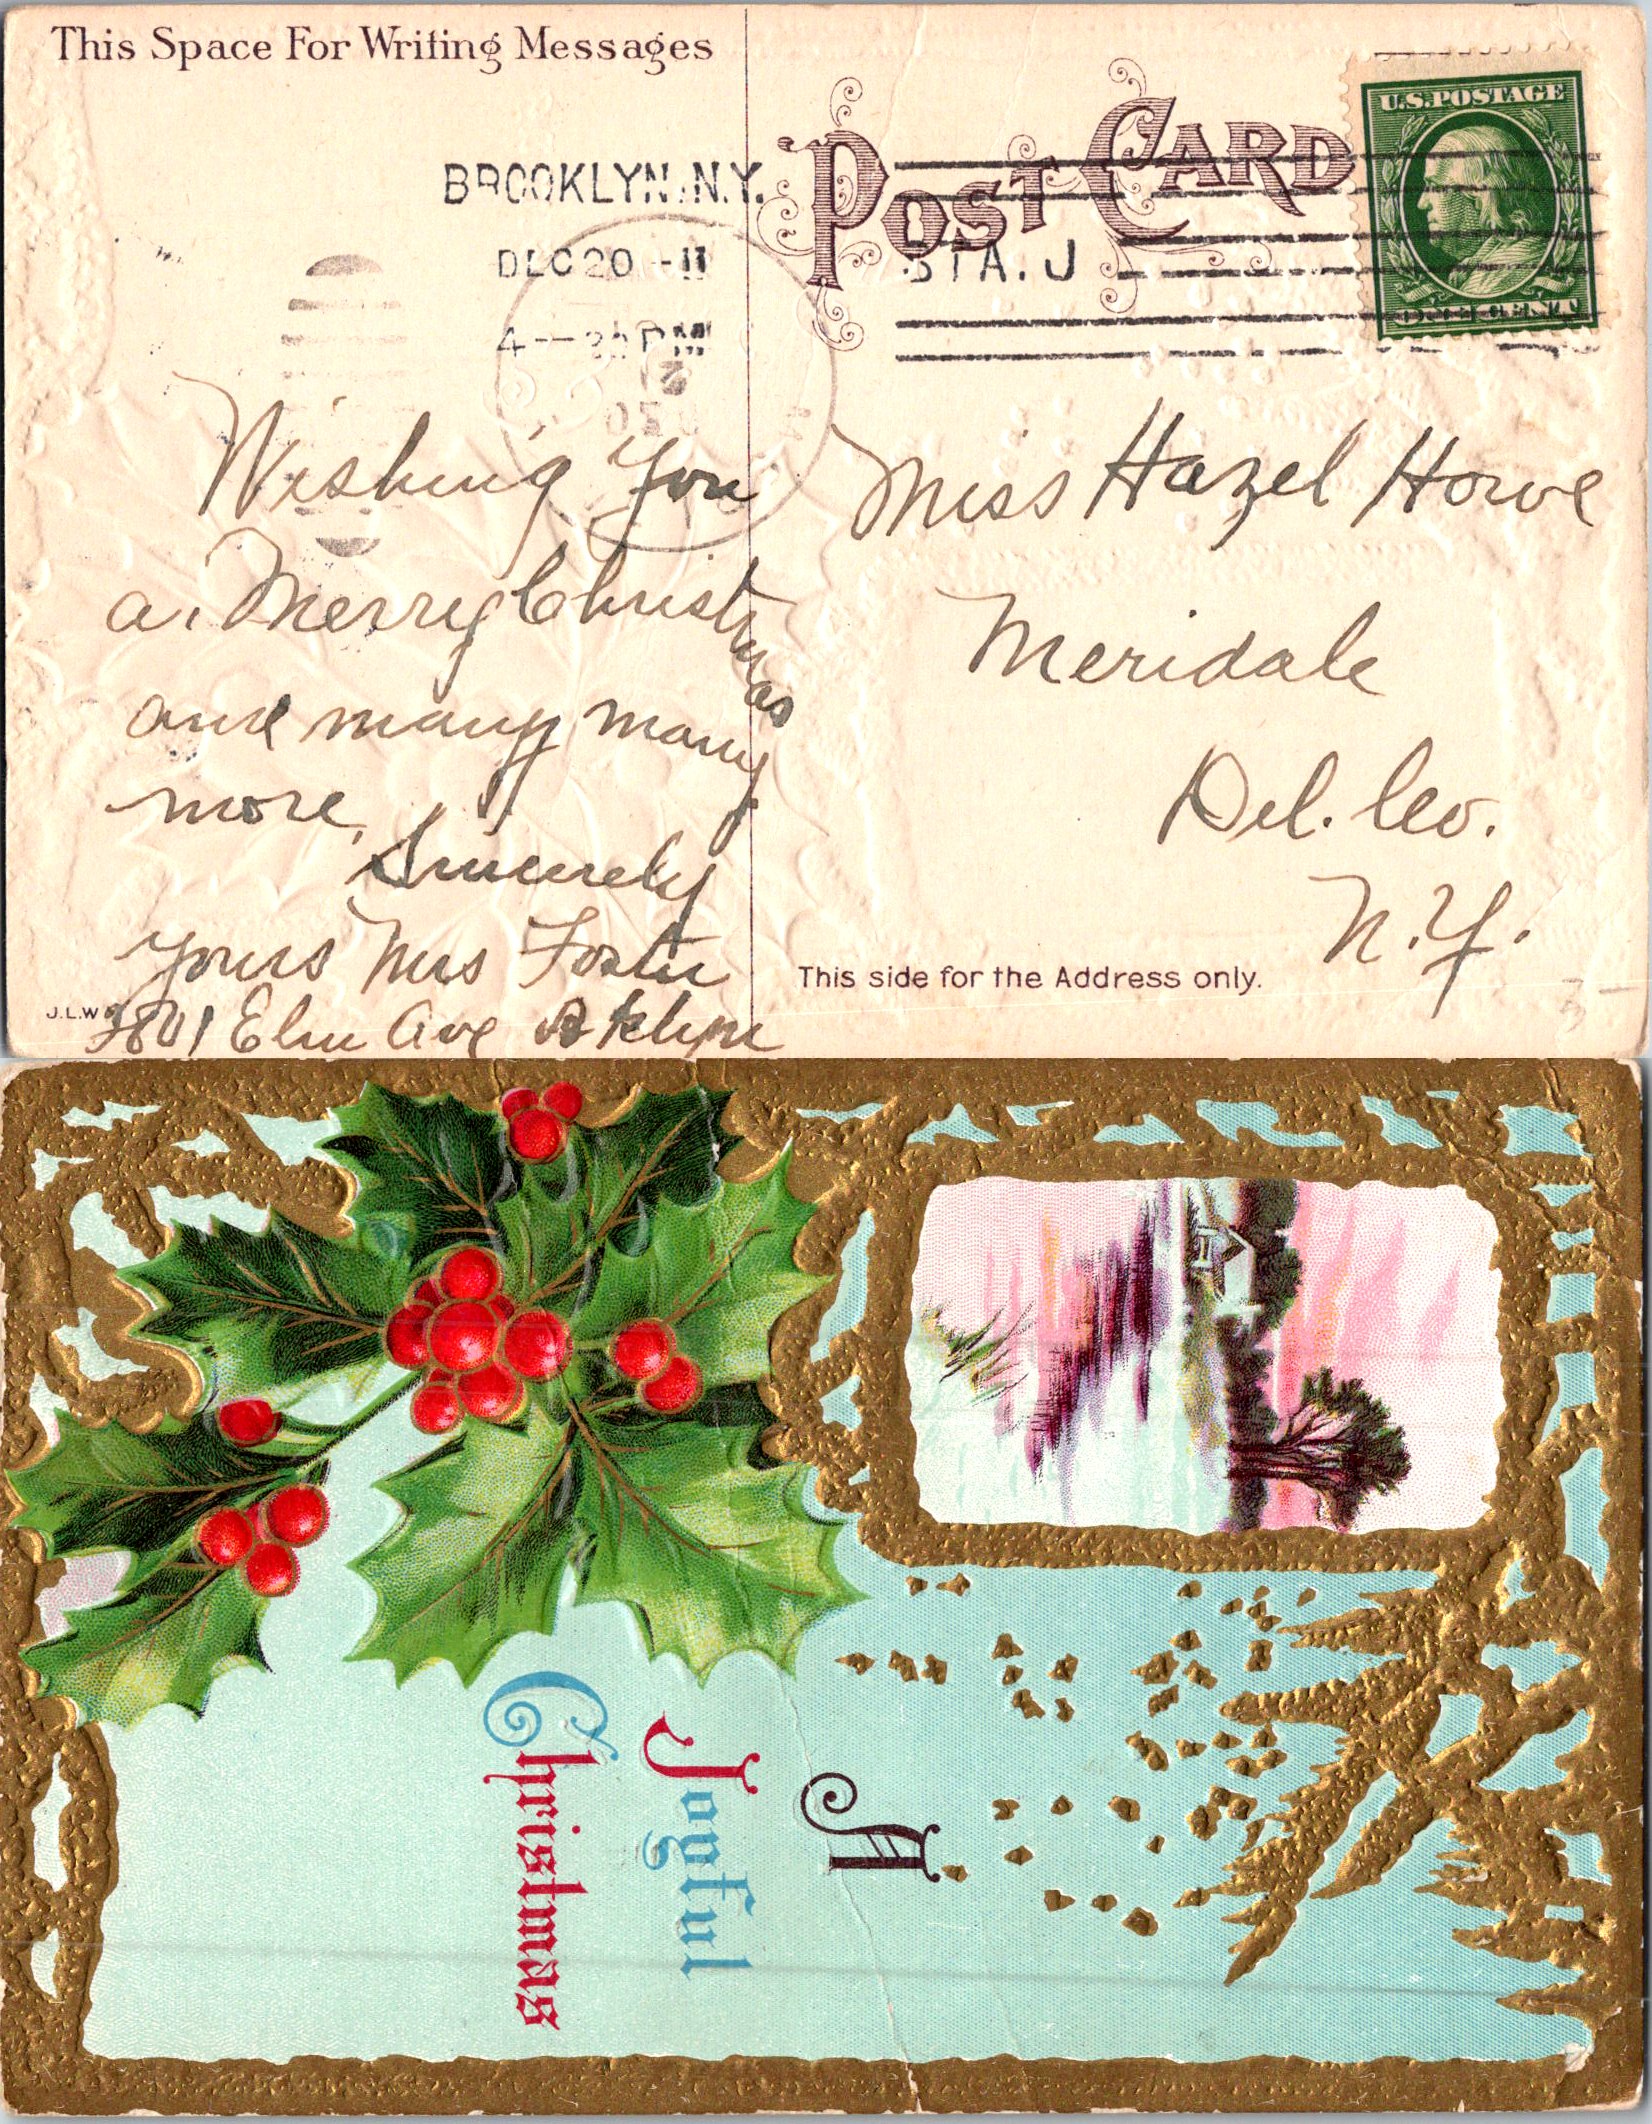 This Space For Writing Messages
POST CARD
U.S. POSTAGE
BROOKLYN. N.Y.
DEC 20 - 11
STA. J
4 -
PM
Wishing you
a. Merry Christmas
and many many
more.
Sincerely
yours Mrs Foster
Elm Ave Bklyn
J.L.W
Miss Hazel Howe
Meridale
Del. Co.
N.Y.
This side for the Address only.
A
Joyful
Christmas